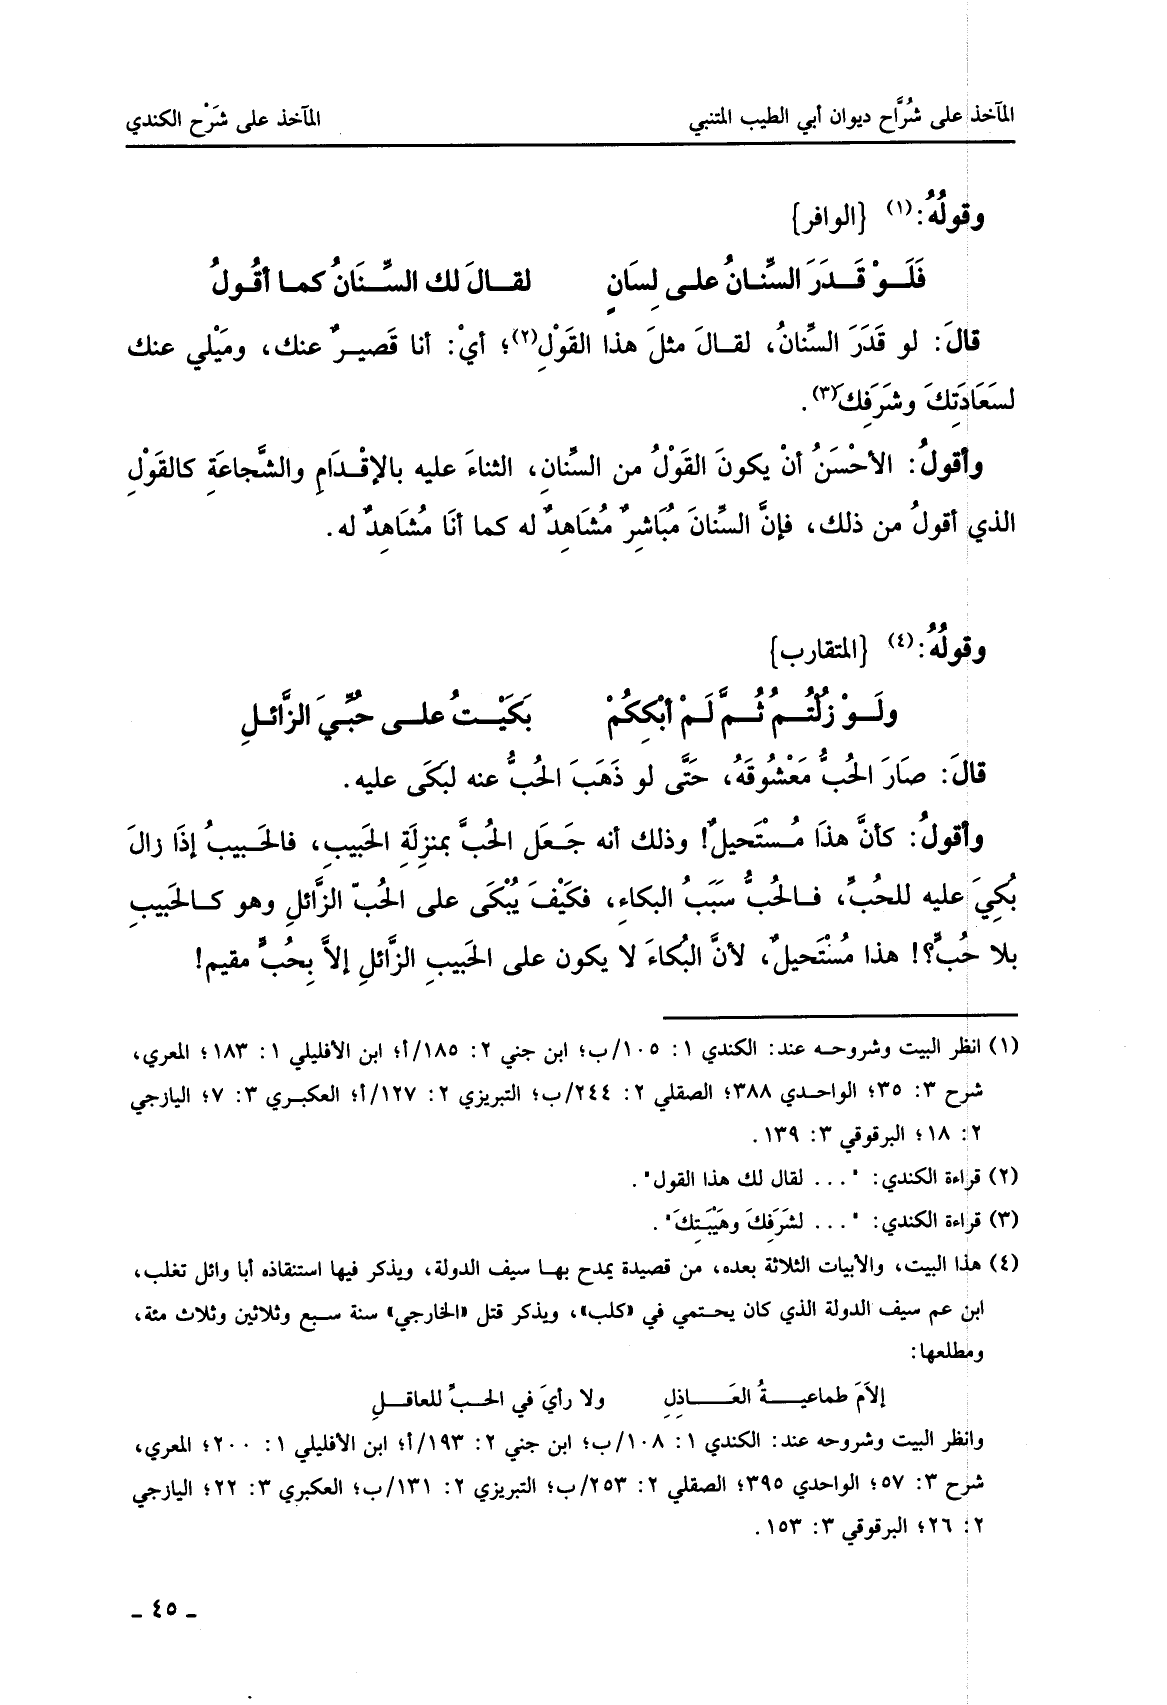 المآخذ على شُرَّاح ديوان أبي الطيب المتنبي المآخذ على شَرْح الكندي
وقولُهُ:(١) {الوافر}
فَلَـوْ قَـدَرَ السِّنـانُ علـى لِسَانٍ لقـالَ لك السِّـنَانُ كمـا أقُـولُ
قالَ: لو قَدَرَ السِّنانُ، لقـالَ مثلَ هذا القَوْلِ(٢)؛ أيْ: أنا قَصيـرٌ عنك، ومَيْلي عنك
لسَعَادَتِكَ وشَرَفِكَ(٣).
وأقولُ: الأحْسَنُ أنْ يكونَ القَوْلُ من السِّنانِ، الثناءَ عليه بالإقْدَامِ والشَّجاعَةِ كالقَوْلِ
الذي أقولُ من ذلك، فإنَّ السِّنانَ مُبَاشِرٌ مُشَاهِدٌ له كما أنَا مُشَاهِدٌ له.
وقولُهُ:(٤) {المتقارب}
ولَـوْ زُلْتُـمُ ثُـمَّ لَـمْ أبْكِكُمْ بَكَيْـتُ علـى حُبِّيَ الزَّائـلِ
قالَ: صَارَ الحُبُّ مَعْشُوقَهُ، حَتَّى لو ذَهَبَ الحُبُّ عنه لبَكَى عليه.
وأقولُ: كأنَّ هذَا مُـسْتَحيلٌ! وذلك أنه جَـعَل الحُبَّ بمنزِلَةِ الحَبيبِ، فالحَـبيبُ إذَا زالَ
بُكِيَ عليه للحُبِّ، فـالحُبُّ سَبَبُ البكاءِ، فكَيْفَ يُبْكَى على الحُبّ الزَّائلِ وهو كـالحَبيبِ
بلا حُبٍّ؟! هذا مُسْتَحيلٌ، لأنَّ البُكاءَ لا يكون على الحَبيبِ الزَّائلِ إلاَّ بِحُبٍّ مقيم!
(١) انظر البيت وشروحـه عند: الكندي ١: ١٠٥/ب؛ ابن جني ٢: ١٨٥/أ؛ ابن الأفليلي ١: ١٨٣؛ المعري،
شرح ٣: ٣٥؛ الواحـدي ٣٨٨؛ الصقلي ٢: ٢٤٤/ب؛ التبريزي ٢: ١٢٧/أ؛ العكبـري ٣: ٧؛ اليازجي
٢: ١٨؛ البرقوقي ٣: ١٣٩.
(٢) قراءة الكندي: "... لقال لك هذا القول".
(٣) قراءة الكندي: "... لشَرَفِكَ وهَيْبَتِكَ".
(٤) هذا البيت، والأبيات الثلاثة بعده، من قصيدة يمدح بهـا سيف الدولة، ويذكر فيها استنقاذه أبا وائل تغلب،
ابن عم سيف الدولة الذي كان يحـتمي في «كلب»، ويذكر قتل «الخارجي» سنة سـبع وثلاثين وثلاث مئة،
ومطلعها:
إلاَمَ طماعيـةُ العَـاذِلِ ولا رأيَ في الحـبِّ للعاقـلِ
وانظر البيت وشروحه عند: الكندي ١: ١٠٨/ب؛ ابن جني ٢: ١٩٣/أ؛ ابن الأفليلي ١: ٢٠٠؛ المعري،
شرح ٣: ٥٧؛ الواحدي ٣٩٥؛ الصقلي ٢: ٢٥٣/ب؛ التبريزي ٢: ١٣١/ب؛ العكبري ٣: ٢٢؛ اليازجي
٢: ٢٦؛ البرقوقي ٣: ١٥٣.
ـ ٤٥ ـ